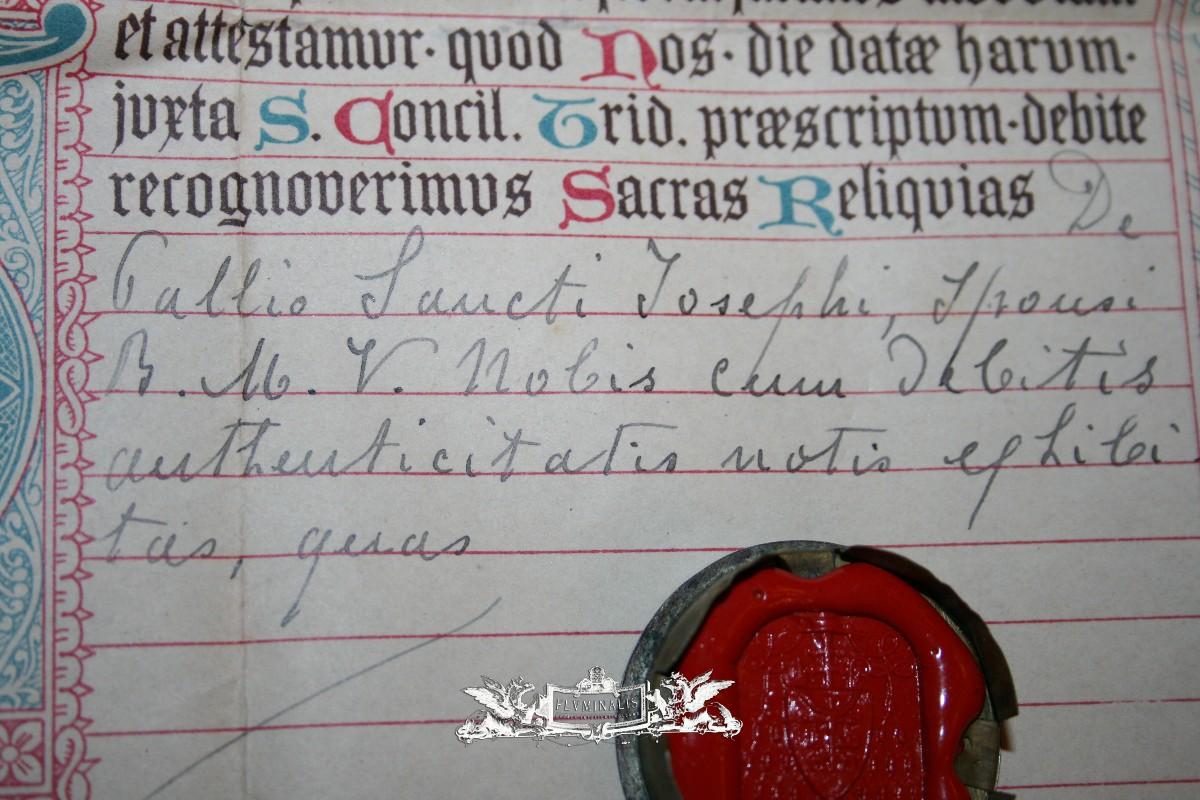 et attestamur· quod Nos· die datæ harum·
juxta S. Concil. Trid. præscriptum·debite
recognoverimus Sacras Reliquias De
Pallio Sancti Josephi, Sponsi
B. M. V. Nobis cum debitis
authenticitatis notis exhibi
tas, quas
FLVMINALIS